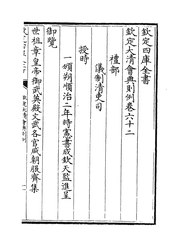 欽定四庫全書
欽定大清會典則例卷六十二
禮部
儀制清吏司
授時
一頒朔順治二年時憲書成欽天監進呈
御覽
世祖章皇帝御武英殿文武各官咸朝服齊集